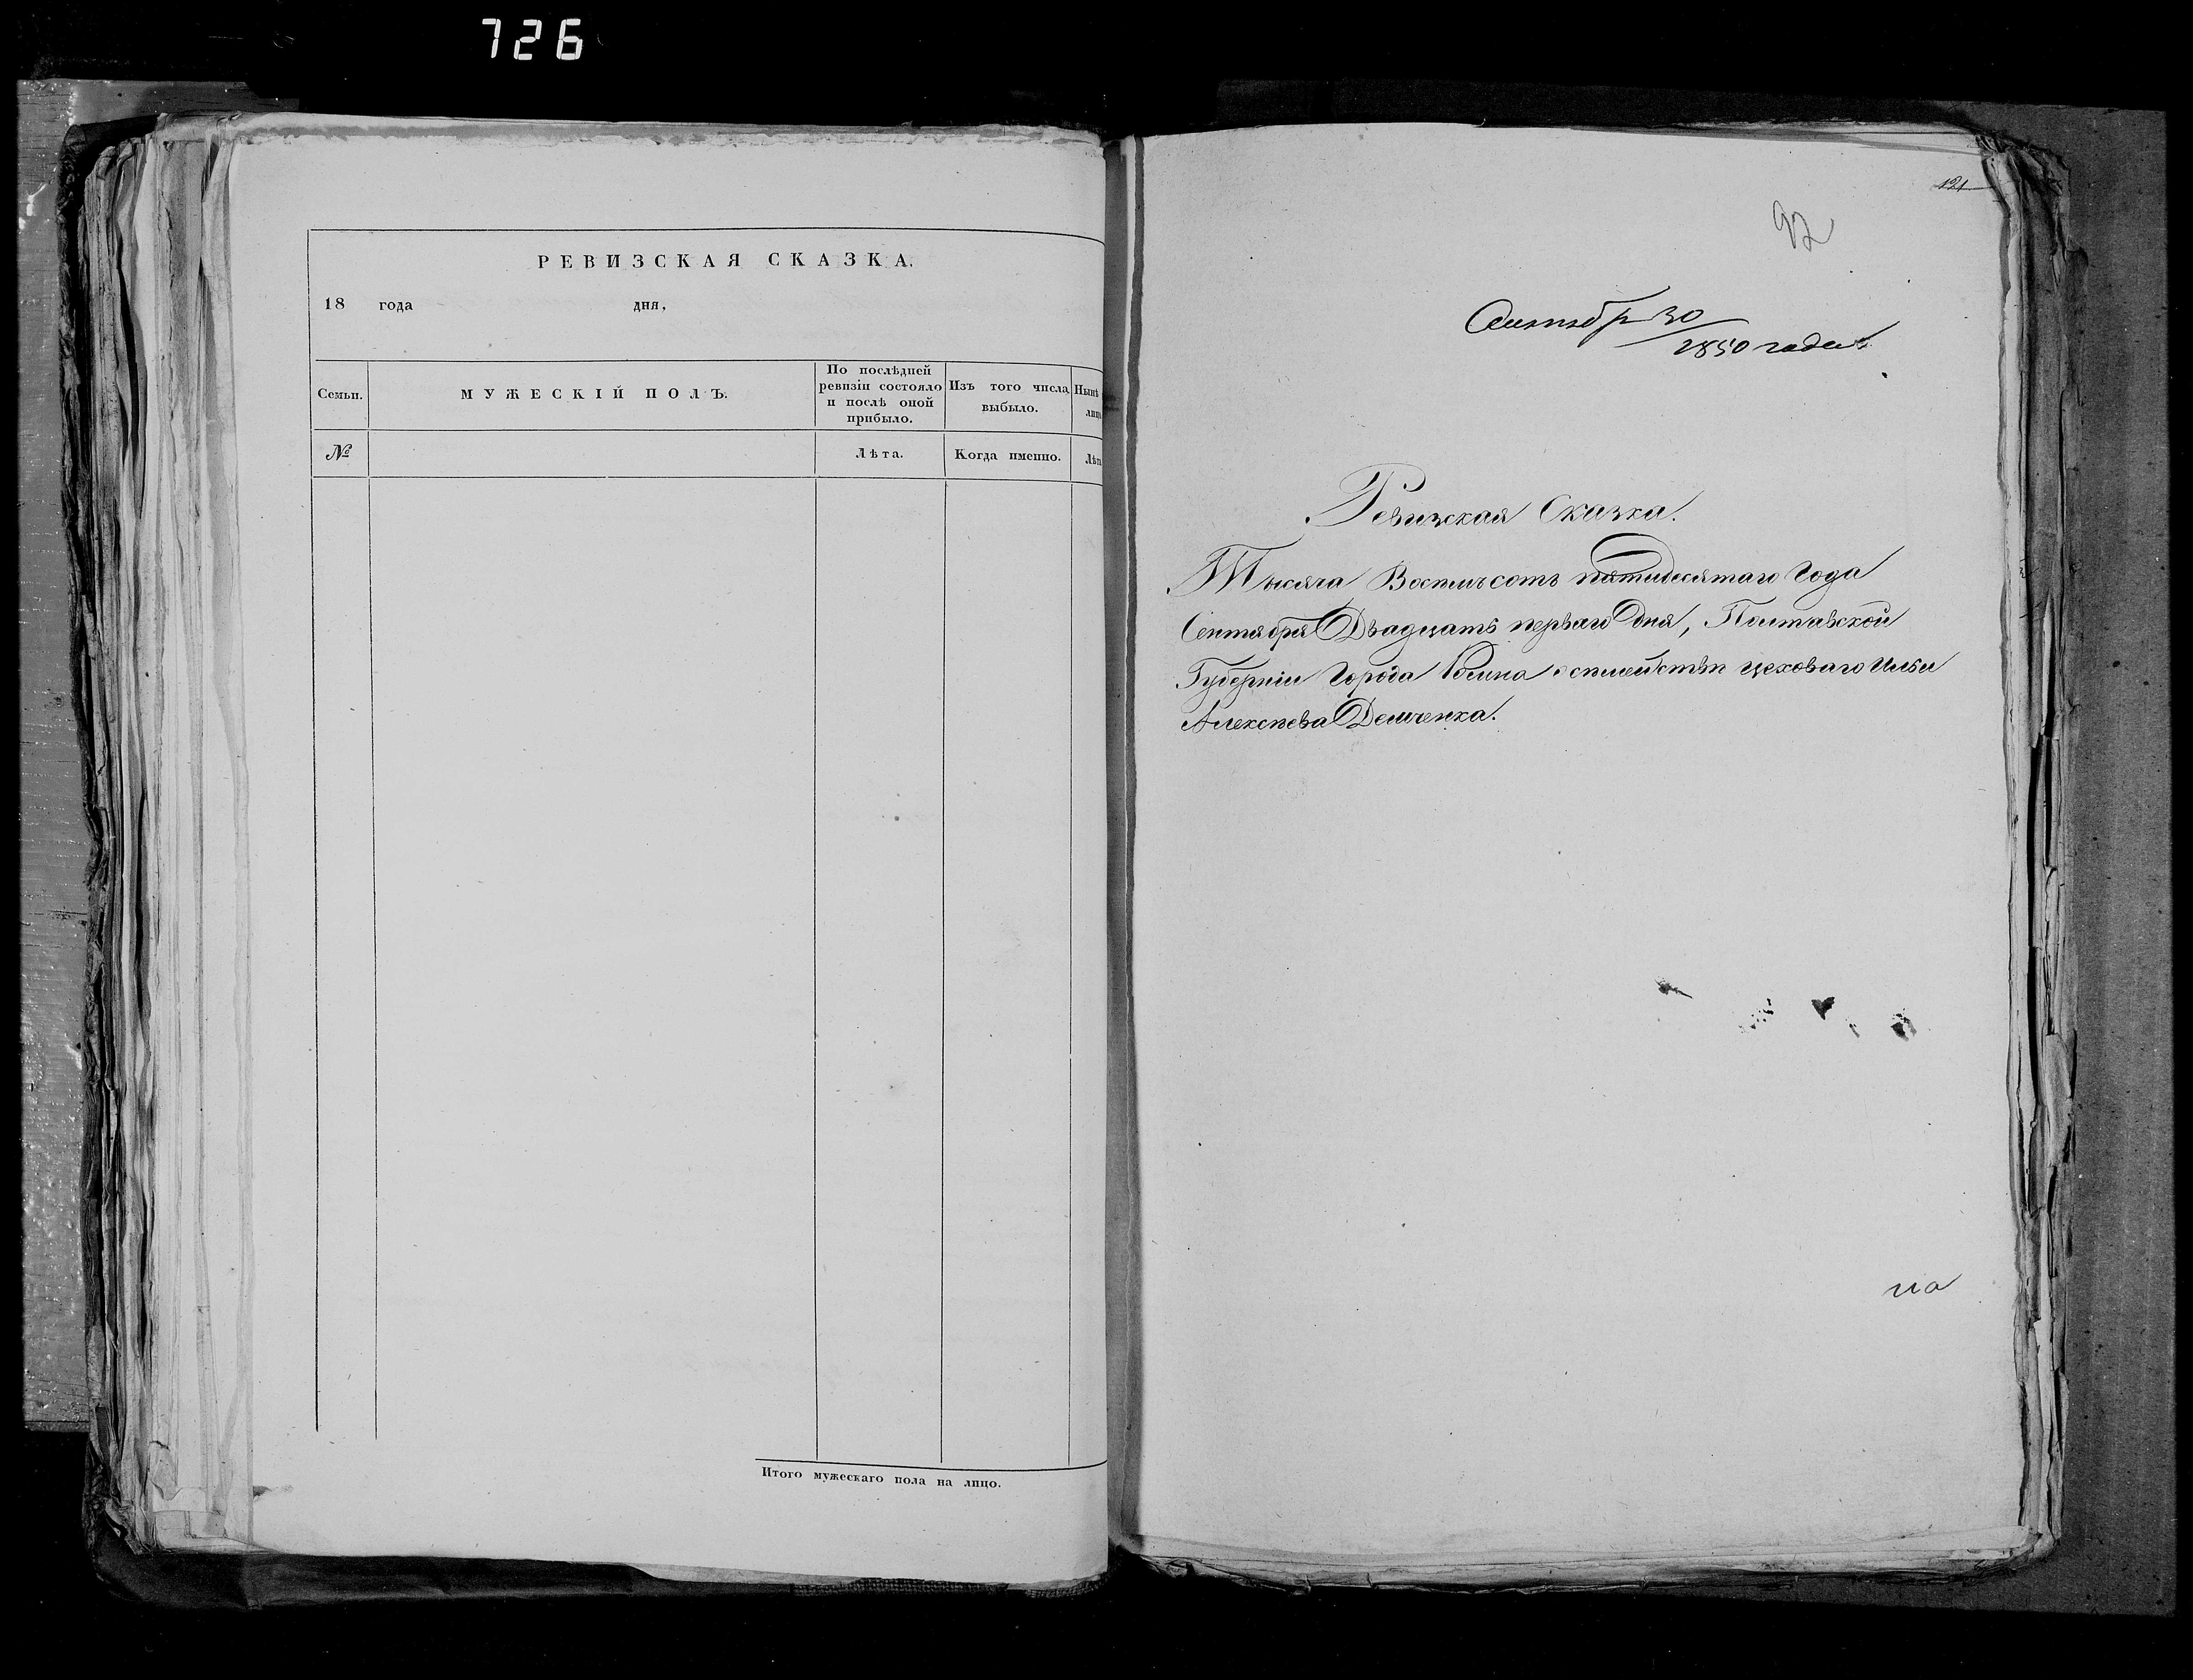 726
РЕВИЗСКАЯ СКАЗКА.
18 года дня,
Семьи.
МУЖЕСКІЙ ПОЛЪ.
По послѣдней
ревизіи состояло
и послѣ оной
прибыло.
Изъ того числа
выбыло.
Нынѣ
лицо
№
Лѣта.
Когда именно.
Лѣта
Итого мужескаго пола на лицо.
121
92
Сентября 30
1850 года
Ревизская Сказка.
Тысяча Восемьсотъ пятидесятаго Года
Сентября Двадцать перваго Дня, Полтавской
Губерніи Города о семействѣ цеховаго Ильи
Алексѣева Демченка.